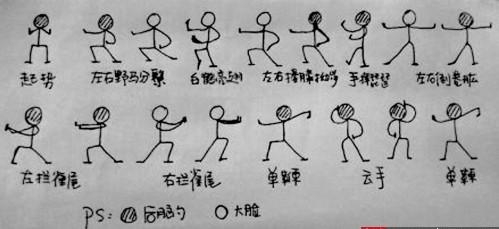 起势 左右野马分鬃 白鹤亮翅 左右搂膝拗步 手挥琵琶 左右倒卷肱
左拦雀尾 右拦雀尾 单鞭 云手 单鞭
PS: 后脑勺 大脸